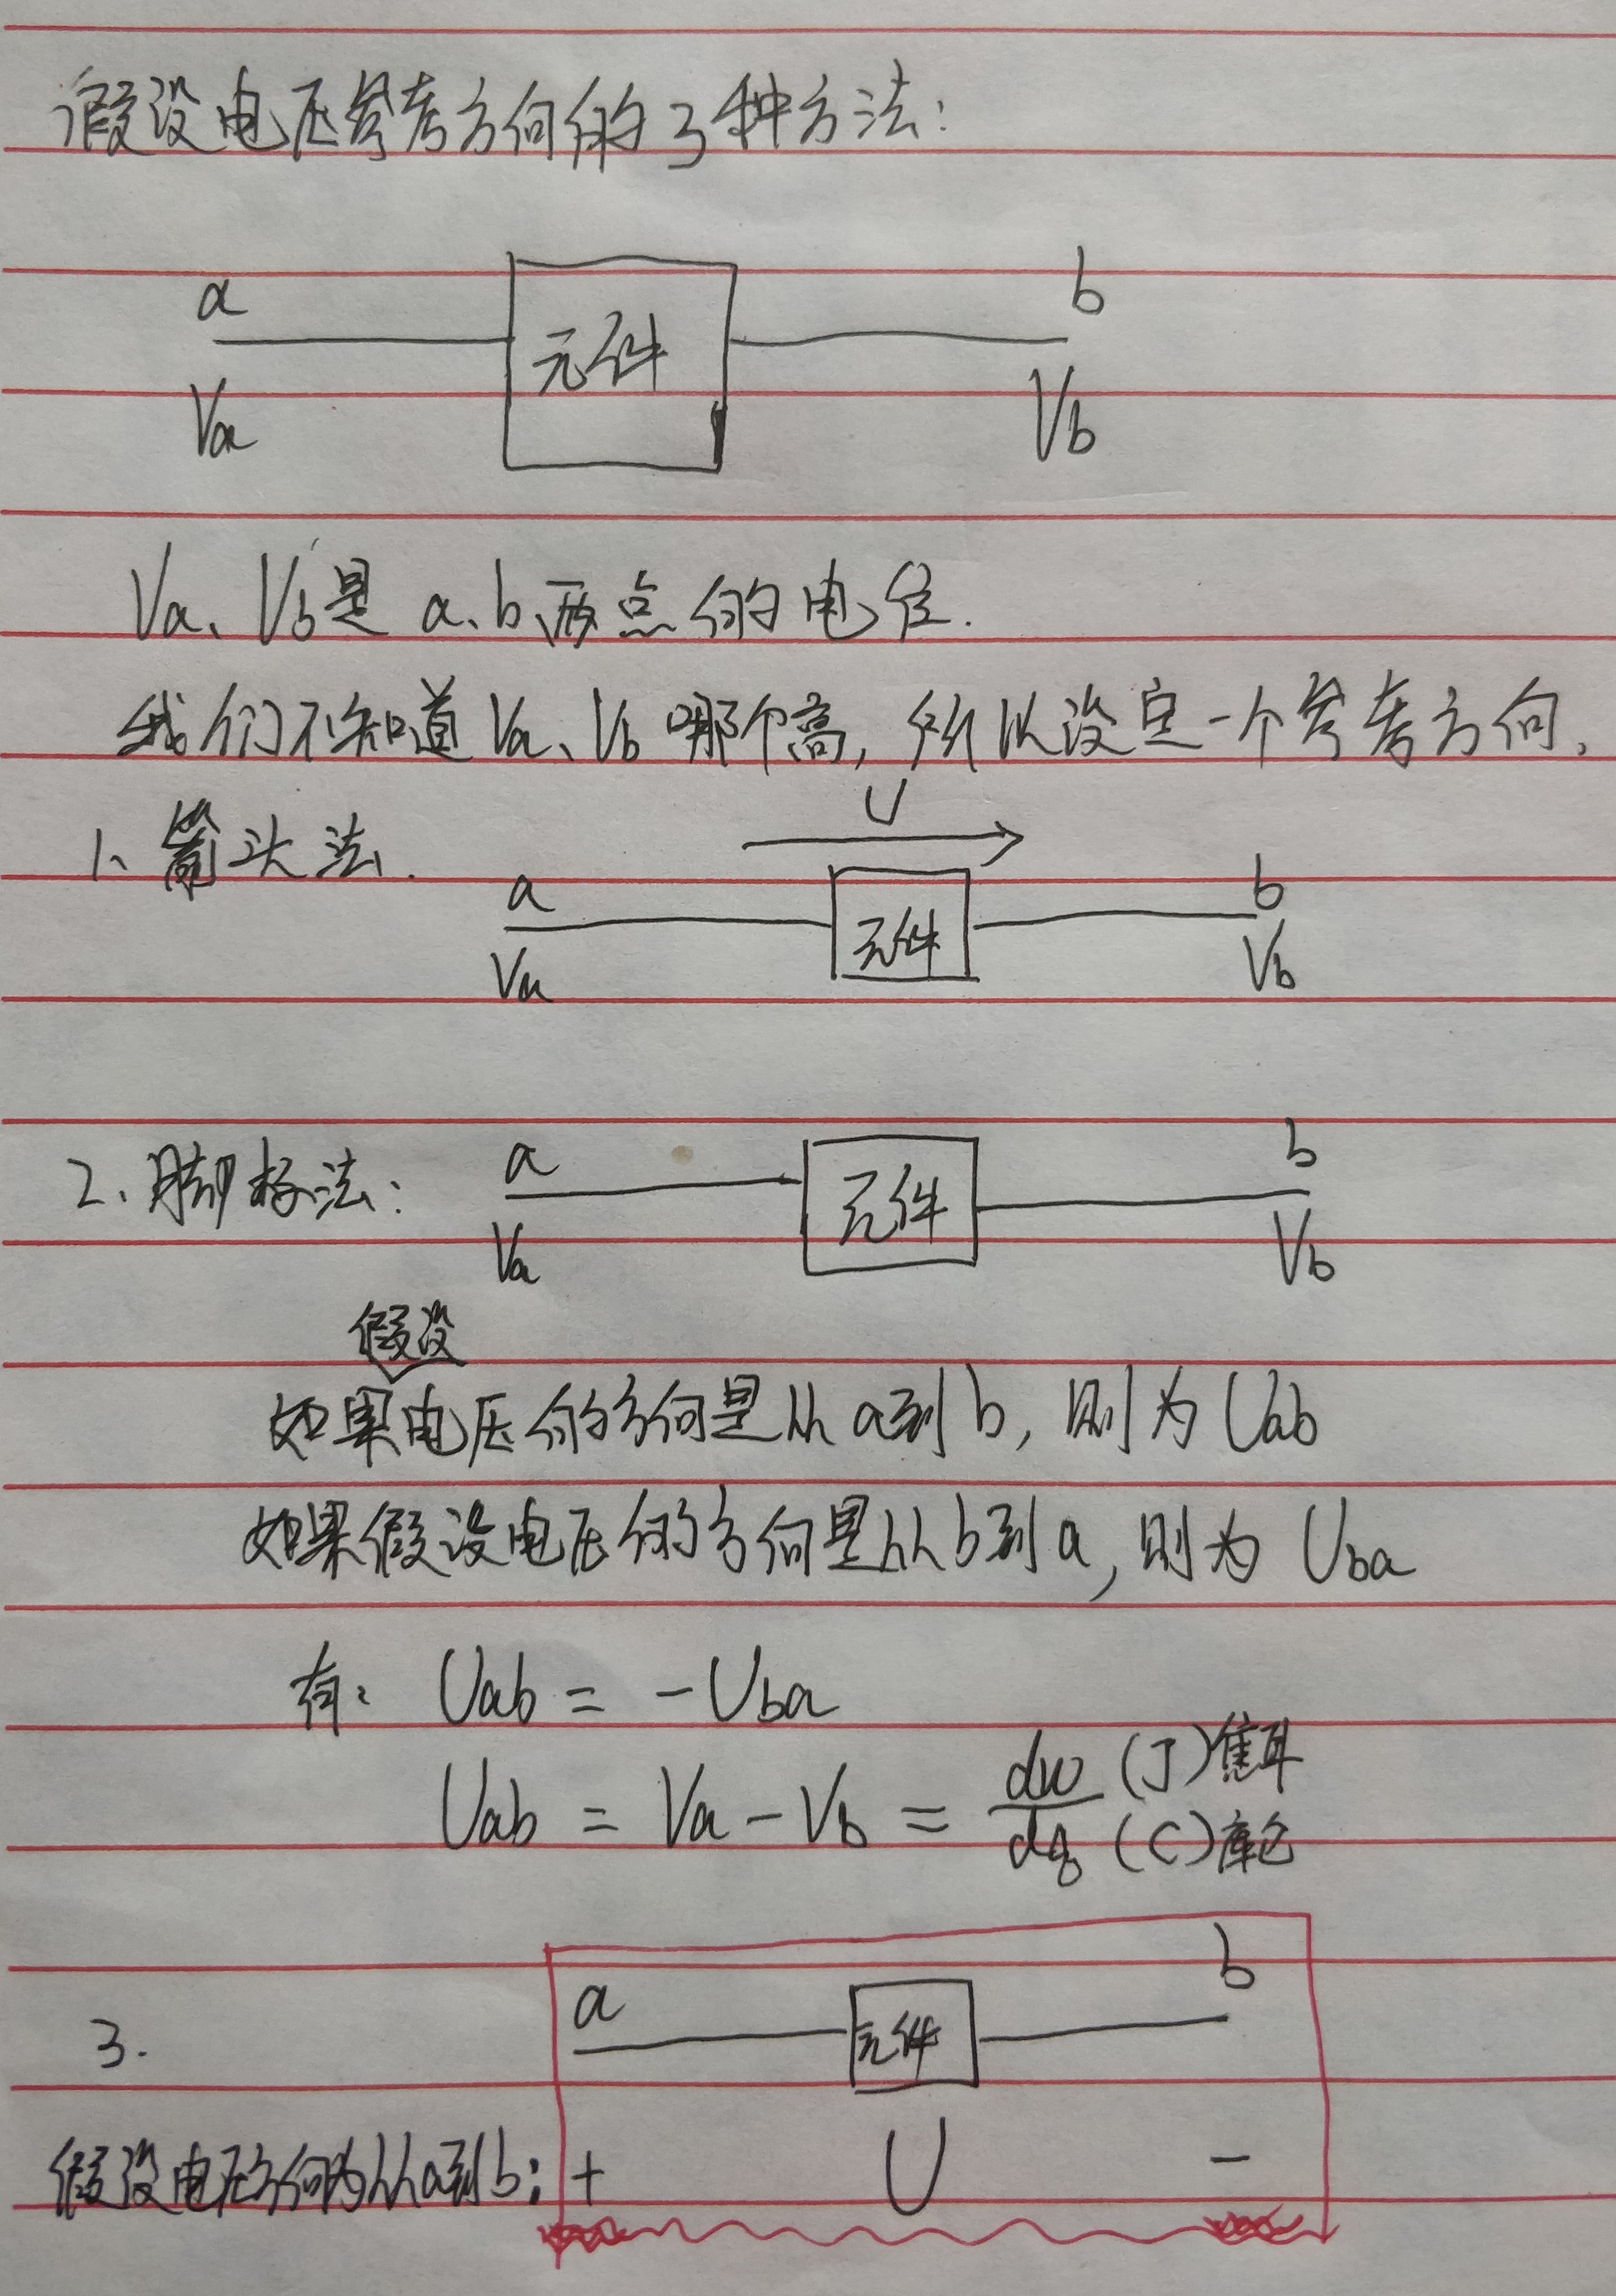 假设电压参考方向的3种方法:
a
b
元件
Va
Vb
Va、Vb是a、b两点的电位.
我们不知道Va、Vb哪个高,所以设定一个参考方向.
U
1、箭头法.
a
b
元件
Va
Vb
2、脚标法:
a
b
元件
Va
Vb
假设
如果电压的方向是从a到b,则为Uab
如果假设电压的方向是从b到a,则为Uba
有: Uab = -Uba
Uab = Va - Vb = dw/dq (J)焦耳 (C)库仑
a
b
3.
元件
假设电压方向为从a到b: + U -